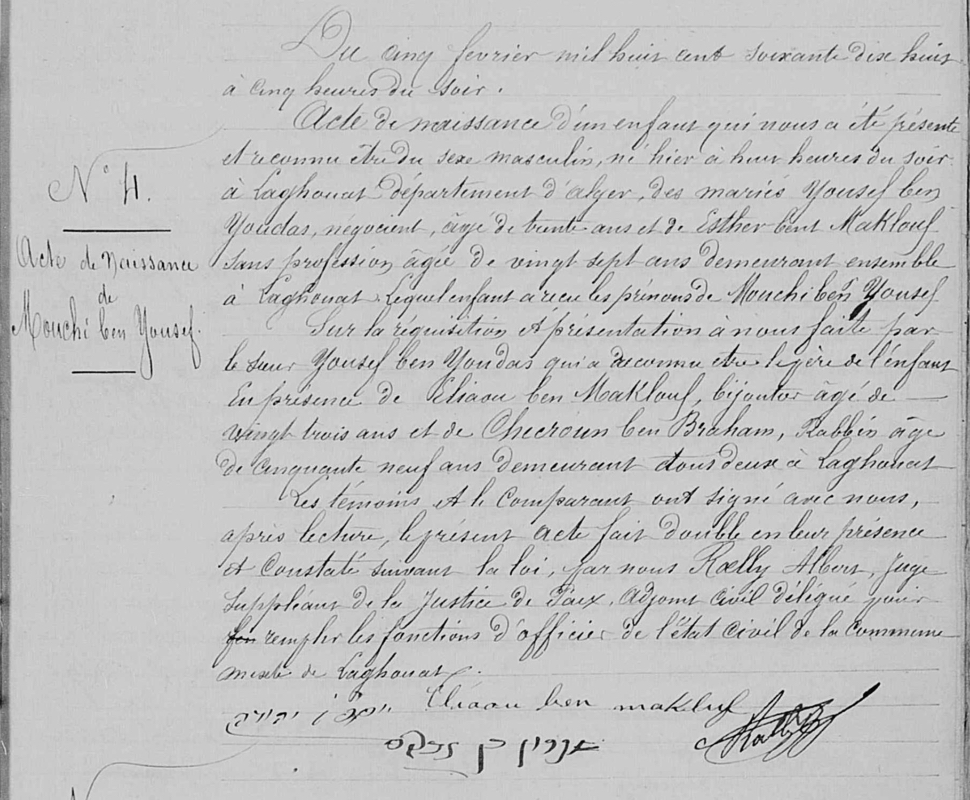 N° 4.
Acte de Naissance
de
Mouchi ben Yousef.
Du cinq février mil huit cent soixante dix huit
à cinq heures du soir.
Acte de naissance d'un enfant qui nous a été présenté
et reconnu être du sexe masculin, né hier à huit heures du soir
à Laghouat département d'alger, des mariés Yousef ben
Youdas, négociant, âgé de trente ans et de Esther bent Maklouf
sans profession, âgée de vingt sept ans demeurant ensemble
à Laghouat. Lequel enfant a reçu les prénoms de Mouchi ben Yousef
Sur la réquisition et présentation à nous faite par
le sieur Yousef ben Youdas qui a reconnu etre le père de l'enfant
En présence de Eliaou ben Maklouf, bijoutier âgé de
vingt trois ans et de Checroun ben Braham, Rabbin âge
de cinquante neuf ans demeurant tous deux à Laghouat
Les témoins et le comparant ont signé avec nous,
après lecture, le présent acte fait double en leur présence
et constaté suivant la loi, par nous Rœlly Albert, juge
suppléant de la Justice de Paix. Adjoint civil délégué pour
remplir les fonctions d'officier de l'état civil de la commune
mixte de Laghouat.
Eliaou ben makluf